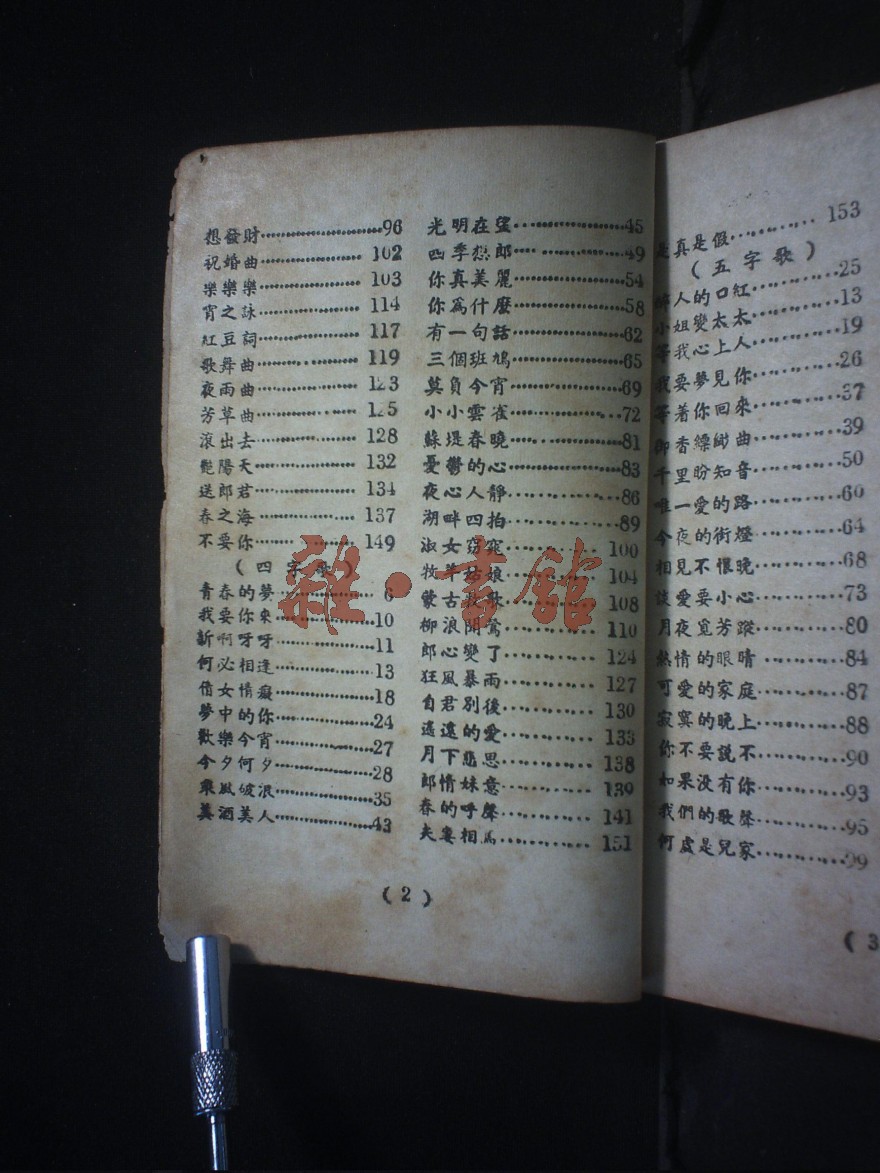 想發財 96
祝婚曲 102
樂樂樂 103
宵之詠 114
紅豆詞 117
歌舞曲 119
夜雨曲 123
芳草曲 125
滾出去 128
艷陽天 132
送郎君 134
春之海 137
不要你 149
(四字歌)
青春的夢 6
我要你來 10
新啊呀呀 11
何必相逢 13
倩女情癡 18
夢中的你 24
歡樂今宵 27
今夕何夕 28
乘風破浪 35
美酒美人 43
光明在望 45
四季想郎 49
你真美麗 54
你爲什麼 58
有一句話 62
三個班鳩 65
莫負今宵 69
小小雲雀 72
蘇堤春曉 81
憂鬱的心 83
夜心人靜 86
湖畔四拍 89
淑女窈窕 100
牧羊姑娘 104
蒙古牧歌 108
柳浪聞鶯 110
郎心變了 124
狂風暴雨 127
自君別後 130
遙遠的愛 133
月下悲思 138
郎情妹意 139
春的呼聲 141
夫妻相罵 151
(2)
真是假 153
(五字歌)
人的口紅 25
小姐變太太 13
等我心上人 19
我要夢見你 26
等着你回來 37
御香縹緲曲 39
千里盼知音 50
唯一愛的路 60
今夜的街燈 64
相見不恨晚 68
談愛要小心 73
月夜覓芳蹤 80
熱情的眼睛 84
可愛的家庭 87
寂寞的晚上 88
你不要說不 90
如果没有你 93
我們的歌聲 95
何處是兒家 99
(3
雜·書館